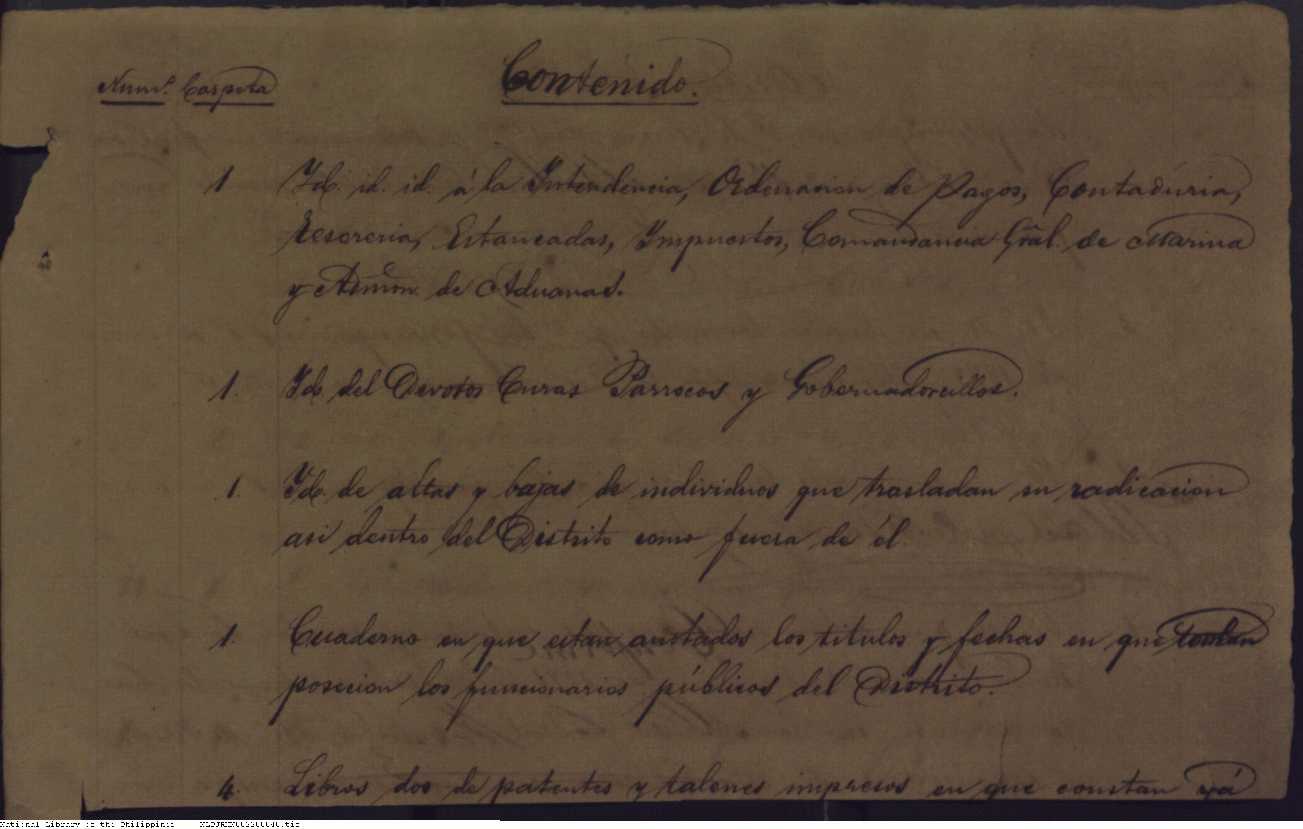 Num.º Carpeta Contenido.
1 Id. id. id. á la Intendencia, Ordenacion de Pagos, Contaduria,
Tesoreria, Estancadas, Impuestos, Comandancia Gral. de Marina
y Admon. de Aduanas.
1. Id. del Devotos Curas Párrocos y Gobernadorcillos.
1. Id. de altas y bajas de individuos que trasladan su radicacion
asi dentro del Distrito como fuera de él.
1. Cuaderno en que estan anotados los titulos y fechas en que toman
posecion los funcionarios públicos del Distrito.
4. Libros dos de patentes y talones impresos en que constan yá
National Library of the Philippines